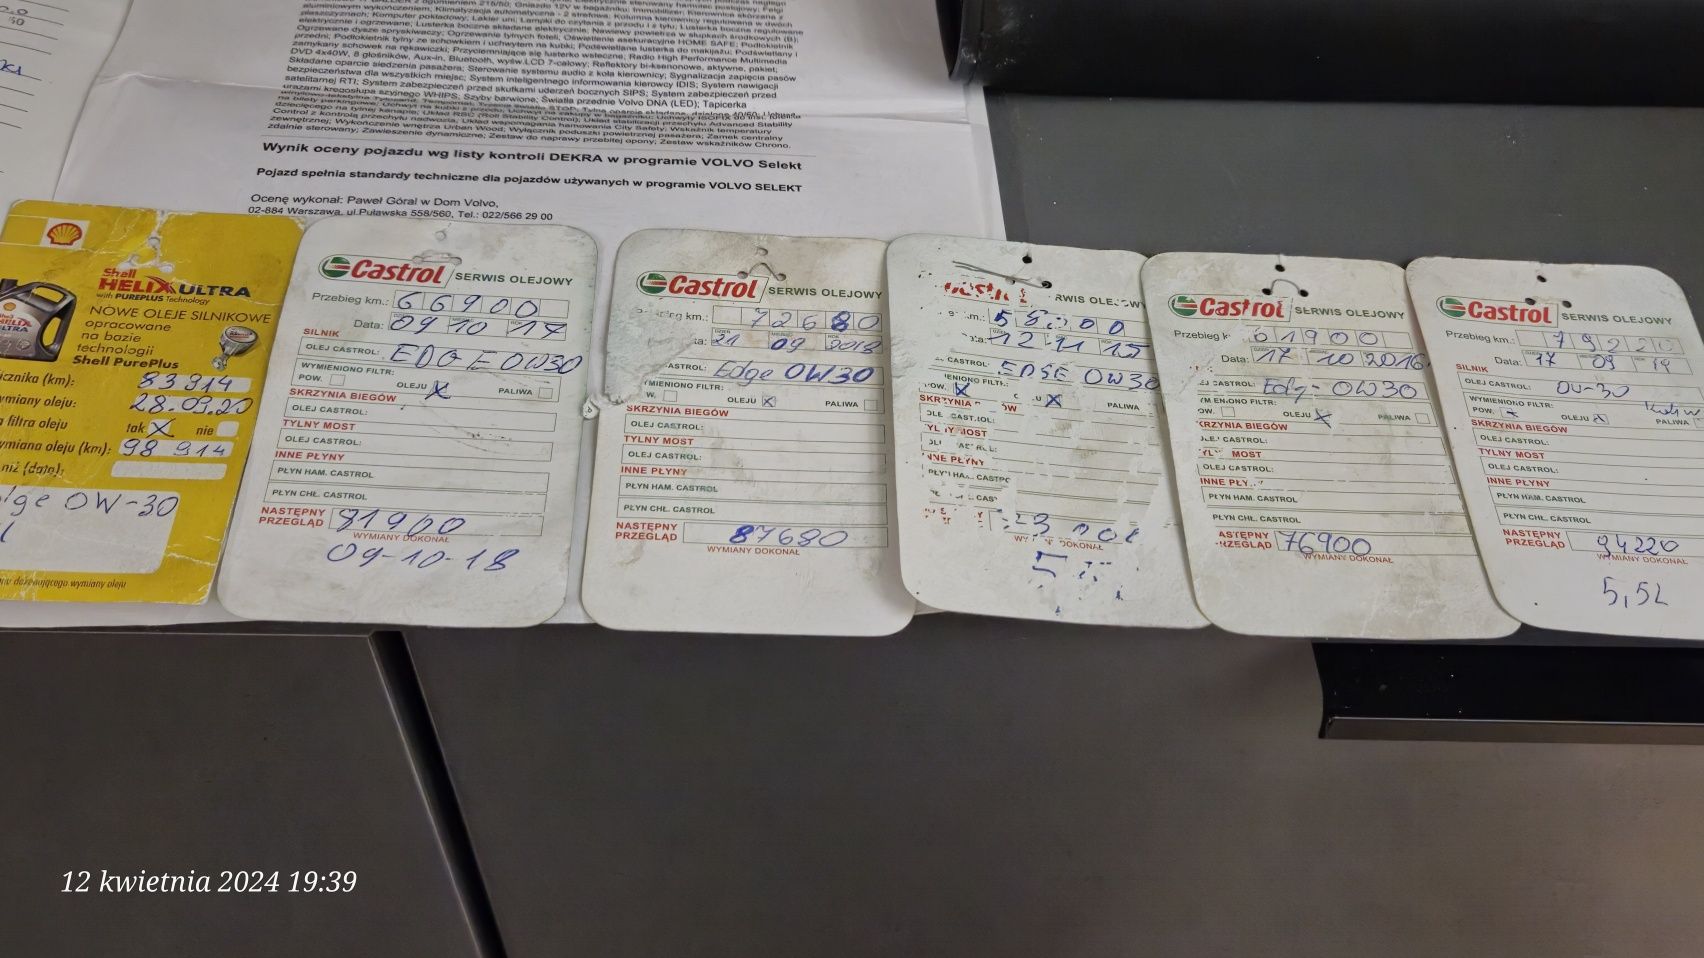 aluminiowym wykończeniem; Klimatyzacja automatyczna - 2 strefowa; Kolumna kierownicy regulowana w dwóch
płaszczyznach; Komputer pokładowy; Lakier uni; Lampki do czytania z przodu i z tyłu; Lusterka boczne regulowane
elektrycznie i ogrzewane; Lusterka boczne składane elektrycznie; Nawiewy powietrza w słupkach środkowych (B);
Ogrzewane dysze spryskiwaczy; Ogrzewanie tylnych foteli; Oświetlenie asekuracyjne HOME SAFE; Podłokietnik
przedni; Podłokietnik tylny ze schowkiem i uchwytem na kubki; Podświetlane lusterka do makijażu; Podświetlany i
zamykany schowek na rękawiczki; Przyciemniające się lusterko wsteczne; Radio High Performance Multimedia
DVD 4x40W, 8 głośników, Aux-in, Bluetooth, wyśw.LCD 7-calowy; Reflektory bi-ksenonowe, aktywne, pakiet;
Składane oparcie siedzenia pasażera; Sterowanie systemu audio z koła kierownicy; Sygnalizacja zapięcia pasów
bezpieczeństwa dla wszystkich miejsc; System inteligentnego informowania kierowcy IDIS; System nawigacji
satelitarnej RTI; System zabezpieczeń przed skutkami uderzeń bocznych SIPS; System zabezpieczeń przed
urazami kręgosłupa szyjnego WHIPS; Szyby barwione; Światła przednie Volvo DNA (LED); Tapicerka
Control z kontrolą przechyłu nadwozia; Układ RSC (Roll Stability Control); Układ stabilizacji przechyłu Advanced Stability
zewnętrznej; Wykończenie wnętrza Urban Wood; Wyłącznik poduszki powietrznej pasażera; Zamek centralny
zdalnie sterowany; Zawieszenie dynamiczne; Zestaw do naprawy przebitej opony; Zestaw wskaźników Chrono.
Wynik oceny pojazdu wg listy kontroli DEKRA w programie VOLVO Selekt
Pojazd spełnia standardy techniczne dla pojazdów używanych w programie VOLVO SELEKT
Ocenę wykonał: Paweł Góral w Dom Volvo,
02-884 Warszawa, ul.Puławska 558/560, Tel.: 022/566 29 00
Shell
HELIX ULTRA
with PUREPLUS Technology
NOWE OLEJE SILNIKOWE
opracowane
na bazie
technologii
Shell PurePlus
(km): 83 914
oleju: 28.09.20
filtra oleju tak X nie
oleju (km): 98 914
niż (data):
0W-30
wymiany oleju
Castrol SERWIS OLEJOWY
Przebieg km.: 66900
Data: 09 10 17
SILNIK
OLEJ CASTROL: EDGE 0W30
WYMIENIONO FILTR:
POW. OLEJU X PALIWA
SKRZYNIA BIEGÓW
OLEJ CASTROL:
TYLNY MOST
OLEJ CASTROL:
INNE PŁYNY
PŁYN HAM. CASTROL
PŁYN CHŁ. CASTROL
NASTĘPNY PRZEGLĄD 81900
WYMIANY DOKONAŁ
09-10-18
Castrol SERWIS OLEJOWY
km.: 72680
21 09 2018
Edge 0W30
FILTR:
OLEJU X PALIWA
SKRZYNIA BIEGÓW
OLEJ CASTROL:
TYLNY MOST
OLEJ CASTROL:
INNE PŁYNY
PŁYN HAM. CASTROL
PŁYN CHŁ. CASTROL
NASTĘPNY PRZEGLĄD 87680
WYMIANY DOKONAŁ
12 11 15
CASTROL: 0W30
POW. X X PALIWA
Castrol SERWIS OLEJOWY
Przebieg 61900
Data: 17 10 2016
0W30
OLEJU X PALIWA
SKRZYNIA BIEGÓW
OLEJ CASTROL:
MOST
OLEJ CASTROL:
INNE
PŁYN HAM. CASTROL
PŁYN CHŁ. CASTROL
76900
WYMIANY DOKONAŁ
Castrol SERWIS OLEJOWY
Przebieg km.: 79220
Data: 17 09 19
SILNIK
OLEJ CASTROL: 0W-30
WYMIENIONO FILTR:
POW. OLEJU X PALIWA
SKRZYNIA BIEGÓW
OLEJ CASTROL:
TYLNY MOST
OLEJ CASTROL:
INNE PŁYNY
PŁYN HAM. CASTROL
PŁYN CHŁ. CASTROL
NASTĘPNY PRZEGLĄD 94220
WYMIANY DOKONAŁ
5,5L
12 kwietnia 2024 19:39